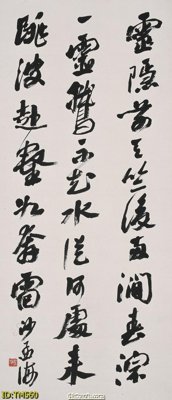 靈隱前天竺後兩澗春淙
一靈鷲不知水從何處來
跳波赴壑如奔雷 沙孟海
ID:TM560